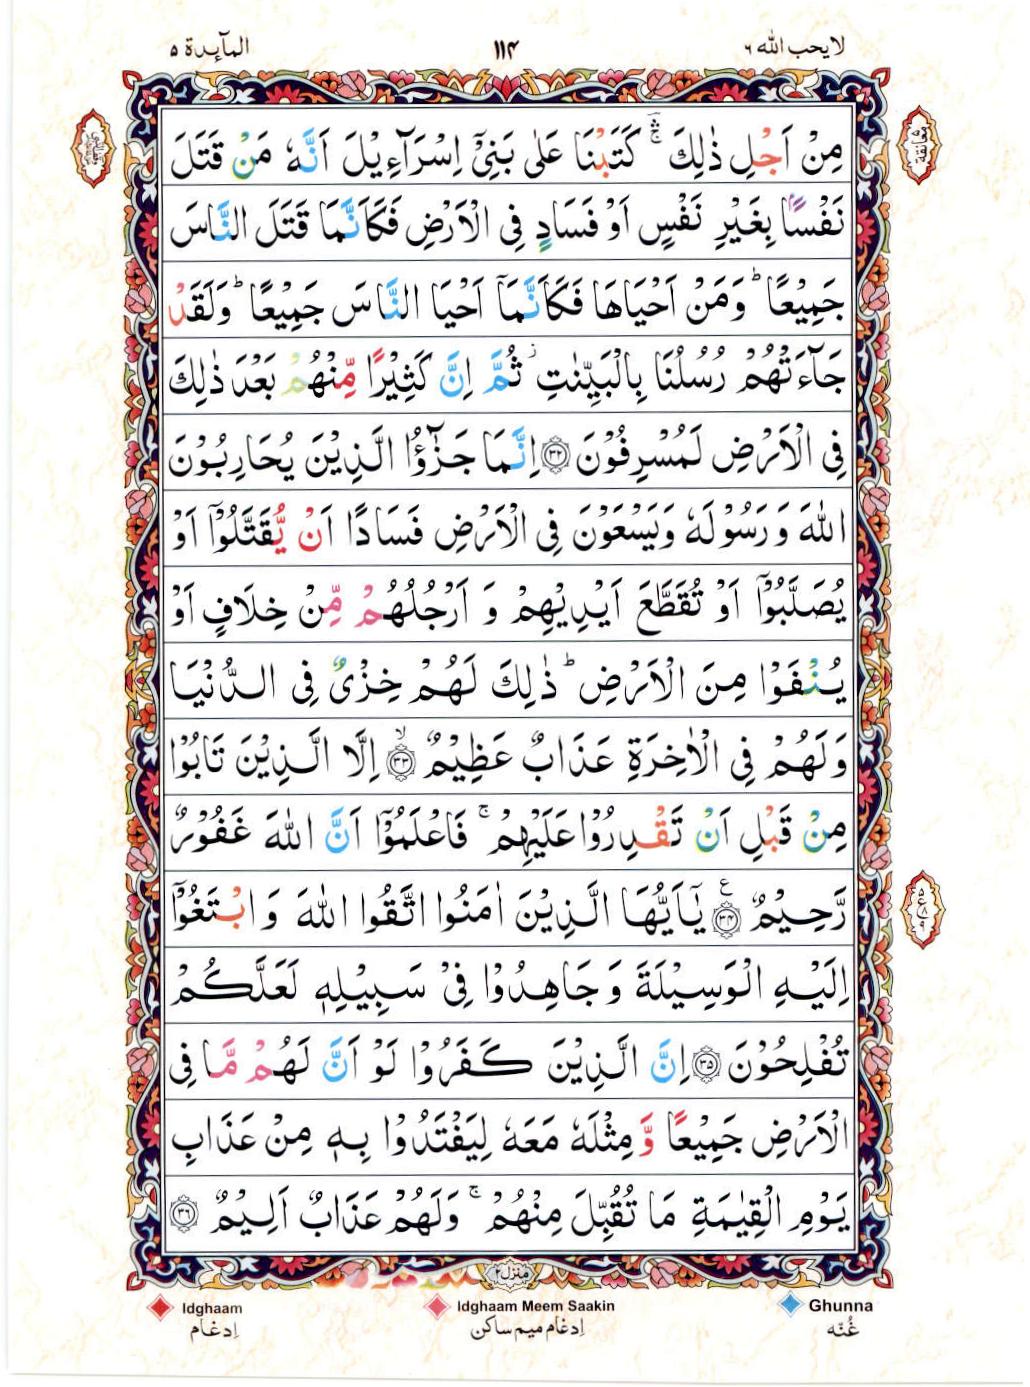 لا يحب الله ٦
١١٤
المآىِٕدة ٥
معانقة
مِنْ اَجْلِ ذٰلِكَ ۛۚ كَتَبْنَا عَلٰى بَنِىْۤ اِسْرَآءِيْلَ اَنَّهٗ مَنْ قَتَلَ
نَفْسًۢا بِغَيْرِ نَفْسٍ اَوْ فَسَادٍ فِى الْاَرْضِ فَكَاَنَّمَا قَتَلَ النَّاسَ
جَمِيْعًا ؕ وَمَنْ اَحْيَاهَا فَكَاَنَّمَاۤ اَحْيَا النَّاسَ جَمِيْعًا ؕ وَلَقَدْ
جَآءَتْهُمْ رُسُلُنَا بِالْبَيِّنٰتِ ز ثُمَّ اِنَّ كَثِيْرًا مِّنْهُمْ بَعْدَ ذٰلِكَ
فِى الْاَرْضِ لَمُسْرِفُوْنَ ۝۳۲ اِنَّمَا جَزٰٓؤُا الَّذِيْنَ يُحَارِبُوْنَ
اللّٰهَ وَرَسُوْلَهٗ وَيَسْعَوْنَ فِى الْاَرْضِ فَسَادًا اَنْ يُّقَتَّلُوْۤا اَوْ
يُصَلَّبُوْۤا اَوْ تُقَطَّعَ اَيْدِيْهِمْ وَ اَرْجُلُهُمْ مِّنْ خِلَافٍ اَوْ
يُنْفَوْا مِنَ الْاَرْضِ ؕ ذٰلِكَ لَهُمْ خِزْىٌ فِى الدُّنْيَا
وَلَهُمْ فِى الْاٰخِرَةِ عَذَابٌ عَظِيْمٌ ۝۳۳ۙ اِلَّا الَّذِيْنَ تَابُوْا
مِنْ قَبْلِ اَنْ تَقْدِرُوْا عَلَيْهِمْ ۚ فَاعْلَمُوْۤا اَنَّ اللّٰهَ غَفُوْرٌ
رَّحِيْمٌ ۝۳۴ ع يٰۤاَيُّهَا الَّذِيْنَ اٰمَنُوا اتَّقُوا اللّٰهَ وَ ابْتَغُوْۤا
اِلَيْهِ الْوَسِيْلَةَ وَجَاهِدُوْا فِىْ سَبِيْلِهٖ لَعَلَّكُمْ
تُفْلِحُوْنَ ۝۳۵ اِنَّ الَّذِيْنَ كَفَرُوْا لَوْ اَنَّ لَهُمْ مَّا فِى
الْاَرْضِ جَمِيْعًا وَّ مِثْلَهٗ مَعَهٗ لِيَفْتَدُوْا بِهٖ مِنْ عَذَابِ
يَوْمِ الْقِيٰمَةِ مَا تُقُبِّلَ مِنْهُمْ ۚ وَلَهُمْ عَذَابٌ اَلِيْمٌ ۝۳۶
منزل ٢
Idghaam
Idghaam Meem Saakin
Ghunna
اِدغام
اِدغام میم ساکن
غُنّه